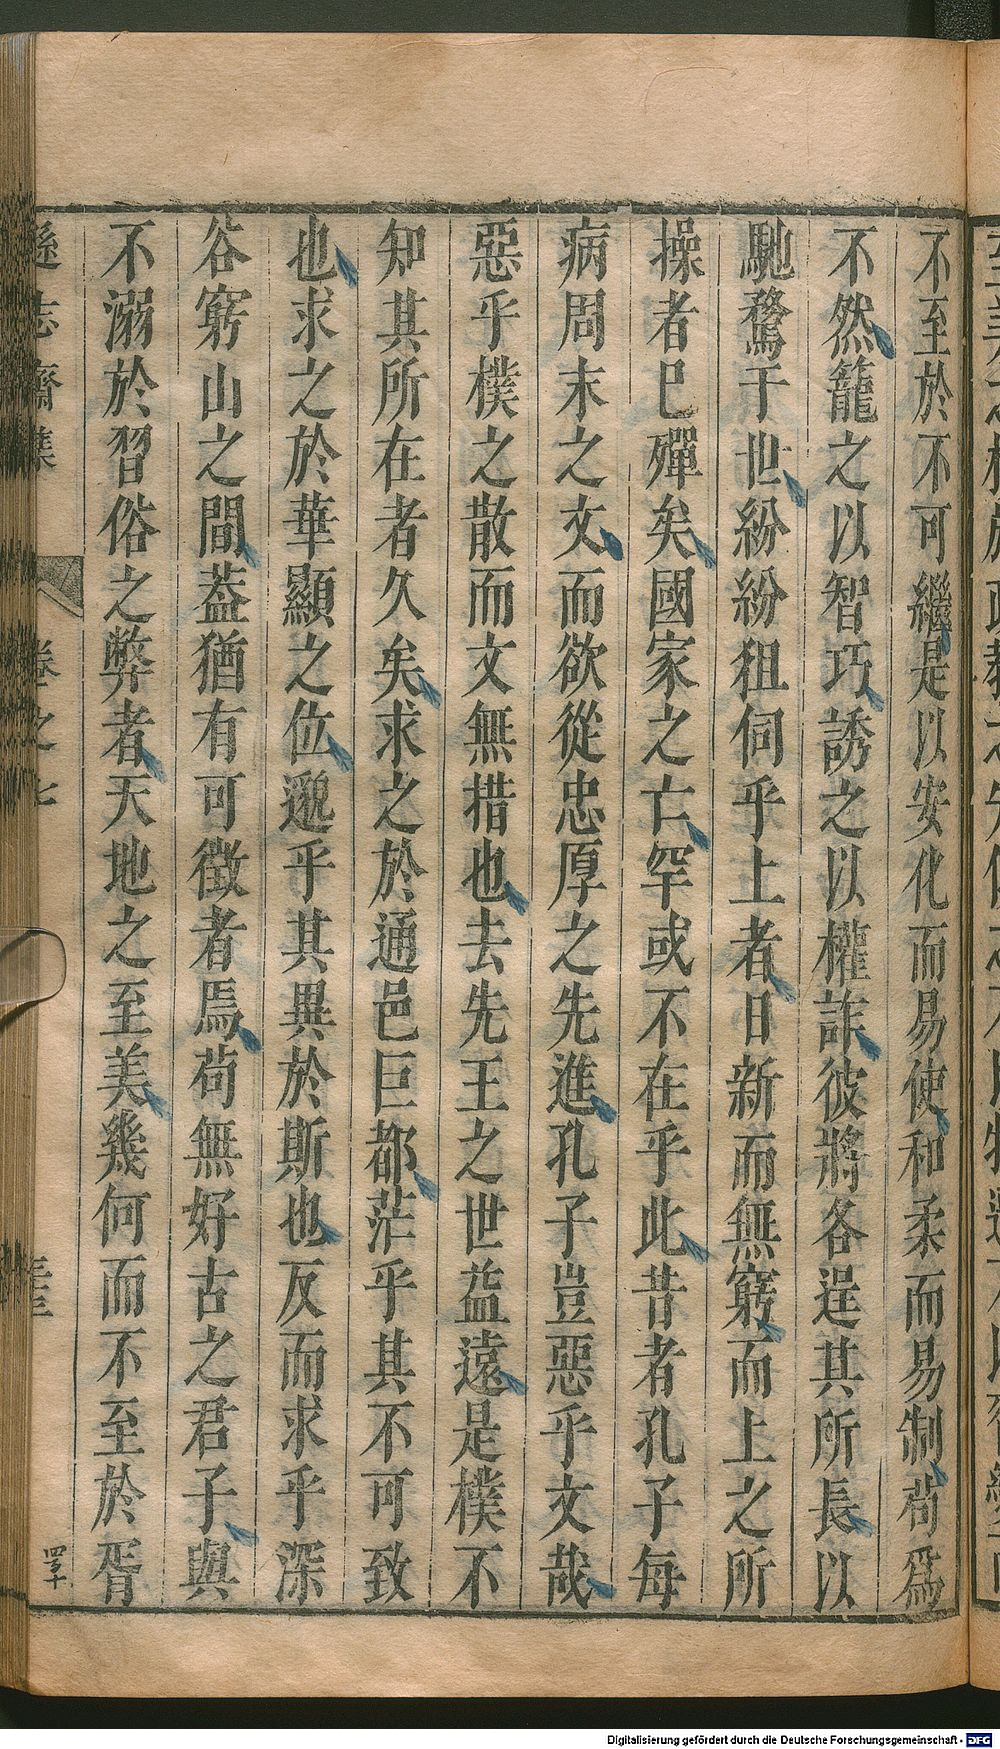 不至於不可繼是以安化而易使和柔而易制苟爲
不然籠之以智巧誘之以權詐彼將各逞其所長以
馳騖于世紛紛狙伺乎上者日新而無窮而上之所
操者已殫矣國家之亡罕或不在乎此昔者孔子每
病周末之文而欲從忠厚之先進孔子豈惡乎文哉
惡乎樸之散而文無措也去先王之世益遠是樸不
知其所在者久矣求之於通邑巨都茫乎其不可致
也求之於華顯之位邈乎其異於斯也反而求乎深
谷窮山之間葢猶有可徵者焉苟無好古之君子與
不溺於習俗之弊者天地之至美幾何而不至於胥
遜志齋集
卷之七
Digitalisierung gefördert durch die Deutsche Forschungsgemeinschaft - DFG